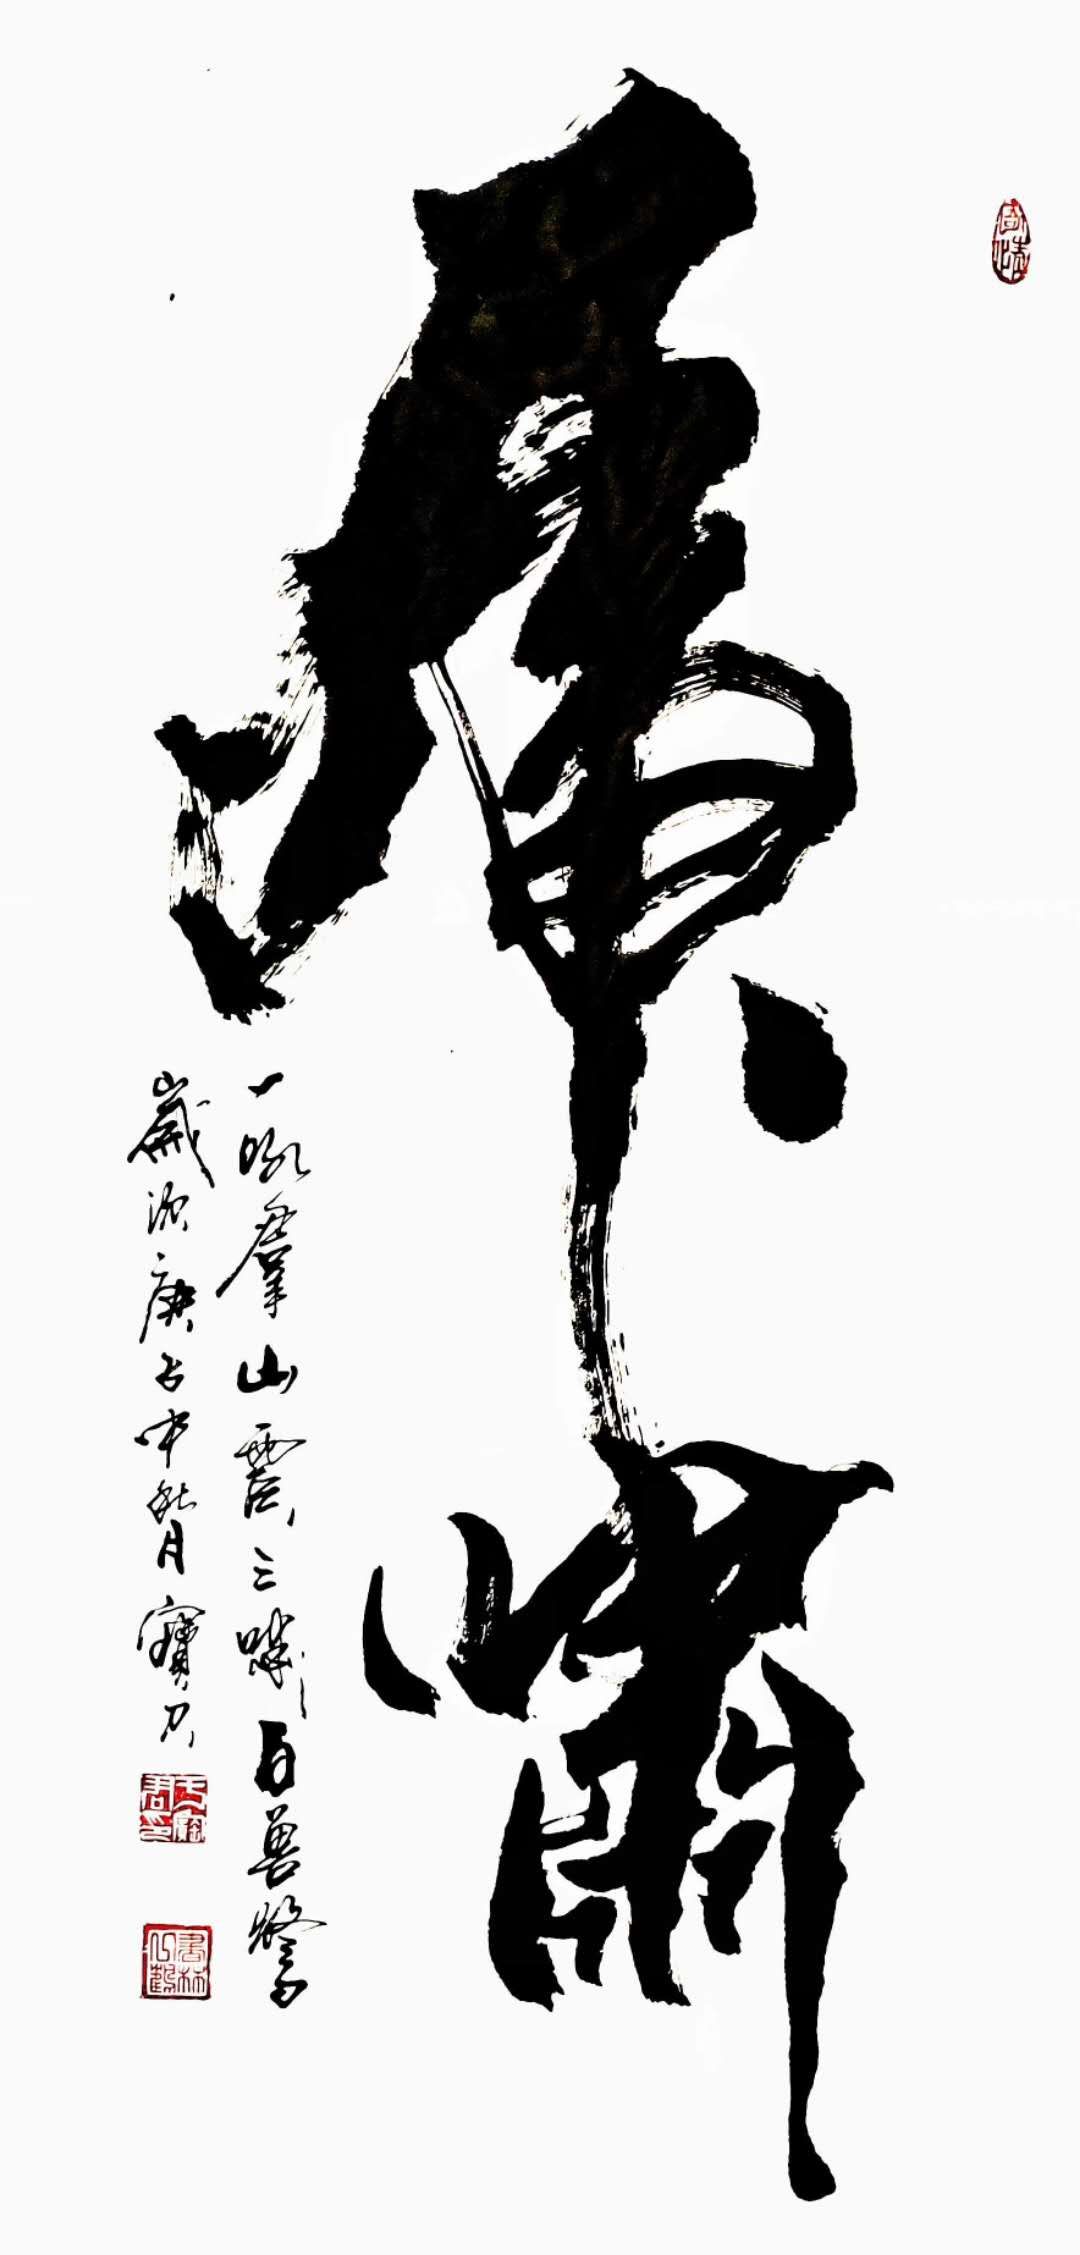 虎嘯
一吼羣山震三嘯百兽驚
歲次庚子中秋月寶刀